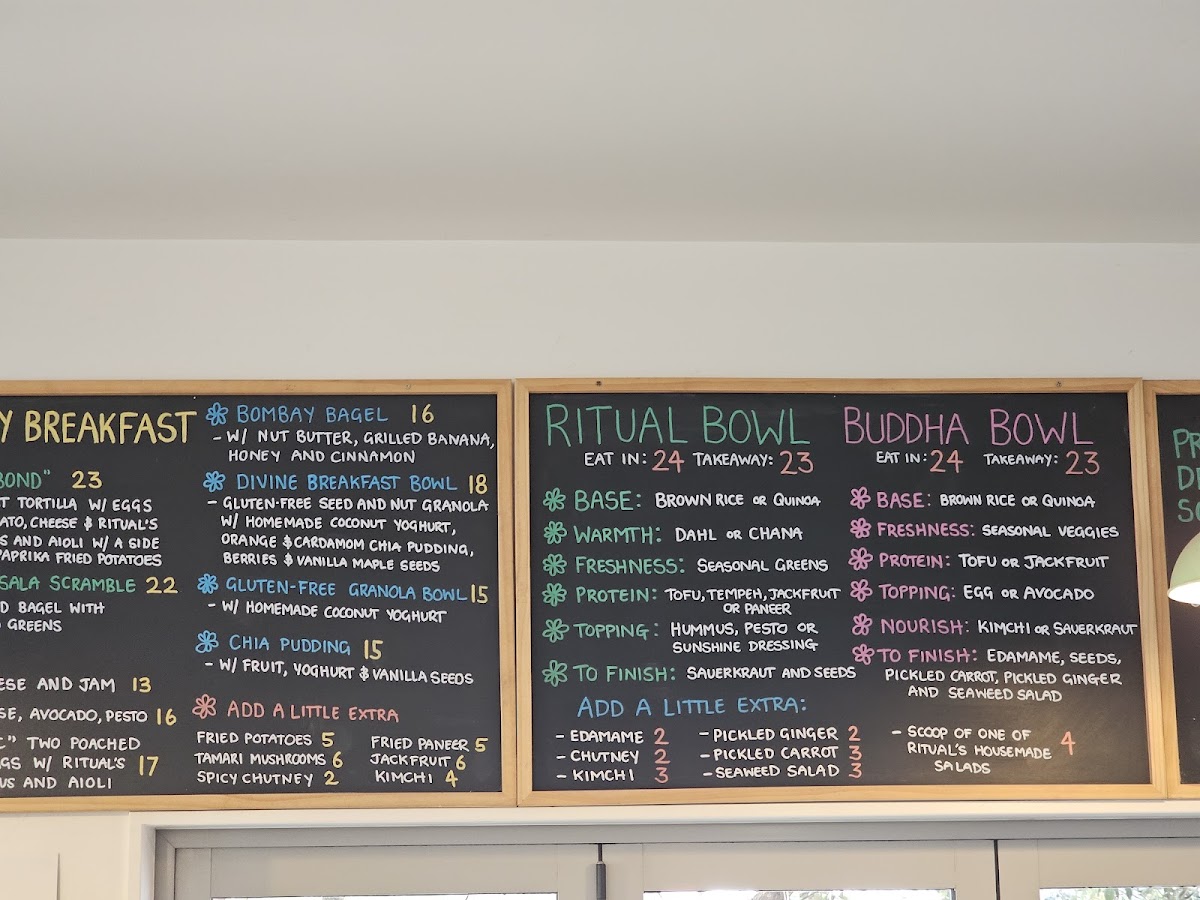 Y BREAKFAST
BOND" 23
T TORTILLA W/ EGGS
ATO, CHEESE & RITUAL'S
S AND AIOLI W/ A SIDE
PAPRIKA FRIED POTATOES
SALA SCRAMBLE 22
D BAGEL WITH
GREENS
ESE AND JAM 13
SE, AVOCADO, PESTO 16
C" TWO POACHED
GGS W/ RITUAL'S 17
US AND AIOLI
BOMBAY BAGEL 16
- W/ NUT BUTTER, GRILLED BANANA,
HONEY AND CINNAMON
DIVINE BREAKFAST BOWL 18
- GLUTEN-FREE SEED AND NUT GRANOLA
W/ HOMEMADE COCONUT YOGHURT,
ORANGE & CARDAMOM CHIA PUDDING,
BERRIES & VANILLA MAPLE SEEDS
GLUTEN-FREE GRANOLA BOWL 15
- W/ HOMEMADE COCONUT YOGHURT
CHIA PUDDING 15
- W/ FRUIT, YOGHURT & VANILLA SEEDS
ADD A LITTLE EXTRA
FRIED POTATOES 5
TAMARI MUSHROOMS 6
SPICY CHUTNEY 2
FRIED PANEER 5
JACKFRUIT 6
KIMCHI 4
RITUAL BOWL
EAT IN: 24 TAKEAWAY: 23
BASE: BROWN RICE OR QUINOA
WARMTH: DAHL OR CHANA
FRESHNESS: SEASONAL GREENS
PROTEIN: TOFU, TEMPEH, JACKFRUIT
OR PANEER
TOPPING: HUMMUS, PESTO OR
SUNSHINE DRESSING
TO FINISH: SAUERKRAUT AND SEEDS
BUDDHA BOWL
EAT IN: 24 TAKEAWAY: 23
BASE: BROWN RICE OR QUINOA
FRESHNESS: SEASONAL VEGGIES
PROTEIN: TOFU OR JACKFRUIT
TOPPING: EGG OR AVOCADO
NOURISH: KIMCHI OR SAUERKRAUT
TO FINISH: EDAMAME, SEEDS,
PICKLED CARROT, PICKLED GINGER
AND SEAWEED SALAD
ADD A LITTLE EXTRA:
- EDAMAME 2
- CHUTNEY 2
- KIMCHI 3
- PICKLED GINGER 2
- PICKLED CARROT 3
- SEAWEED SALAD 3
- SCOOP OF ONE OF
RITUAL'S HOUSEMADE 4
SALADS
PR
DR
SO